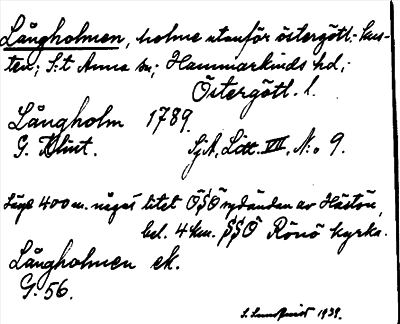 Långholmen, holme utanför östergötl. kus-
ten; S:t Anna sn; Hammarkinds hd;
Östergötl. l.
Långholm 1789.
G. Klint. SjA, Litt. VII, N:o 9.
Läge 400 m. något litet ÖSÖ sydändan av Hästön,
bel. 4 km. SSÖ Rönö kyrka.
Långholmen ek.
G. 56.
S. Lundqvist 1939.